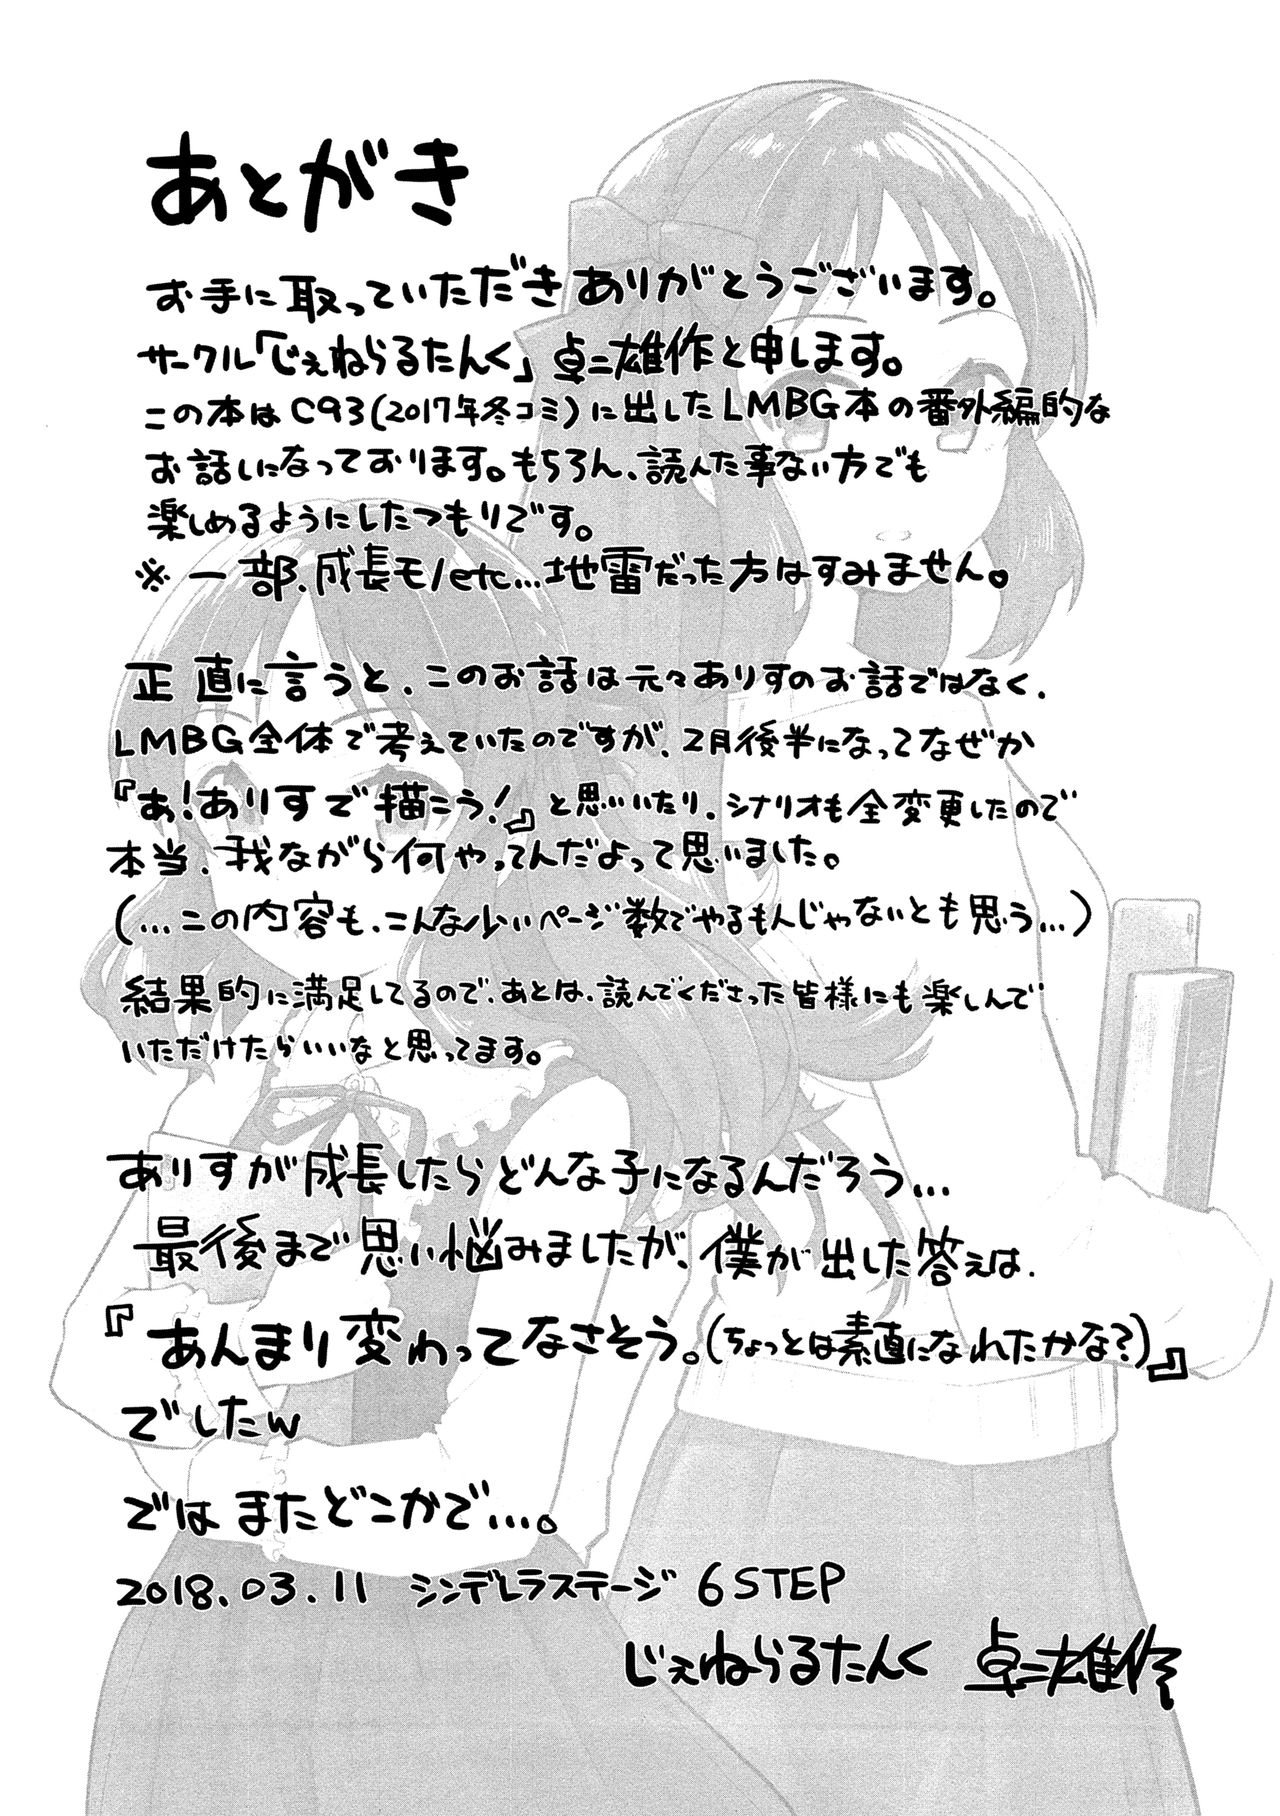 あとがき
お手に取っていただきありがとうございます。
サークル「じぇねらるたんく」卓二雄作と申します。
この本はC93(2017年冬コミ)に出したLMBG本の番外編的な
お話になっております。もちろん、読んだ事ない方でも
楽しめるようにしたつもりです。
※一部、成長モノetc...地雷だった方はすみません。
正直に言うと、このお話は元々ありすのお話ではなく、
LMBG全体で考えていたのですが、2月後半になってなぜか
『あ!ありすで描こう!』と思いいたり、シナリオも全変更したので
本当、我ながら何やってんだよって思いました。
(...この内容も、こんな少いページ数でやるもんじゃないとも思う...)
結果的に満足してるので、あとは、読んでくださった皆様にも楽しんで
いただけたらいいなと思ってます。
ありすが成長したらどんな子になるんだろう...
最後まで思い悩みましたが、僕が出した答えは、
『あんまり変わってなさそう。(ちょっとは素直になれたかな?)』
でしたw
では またどこかで...。
2018.03.11 シンデレラステージ 6STEP
じぇねらるたんく 卓二雄作